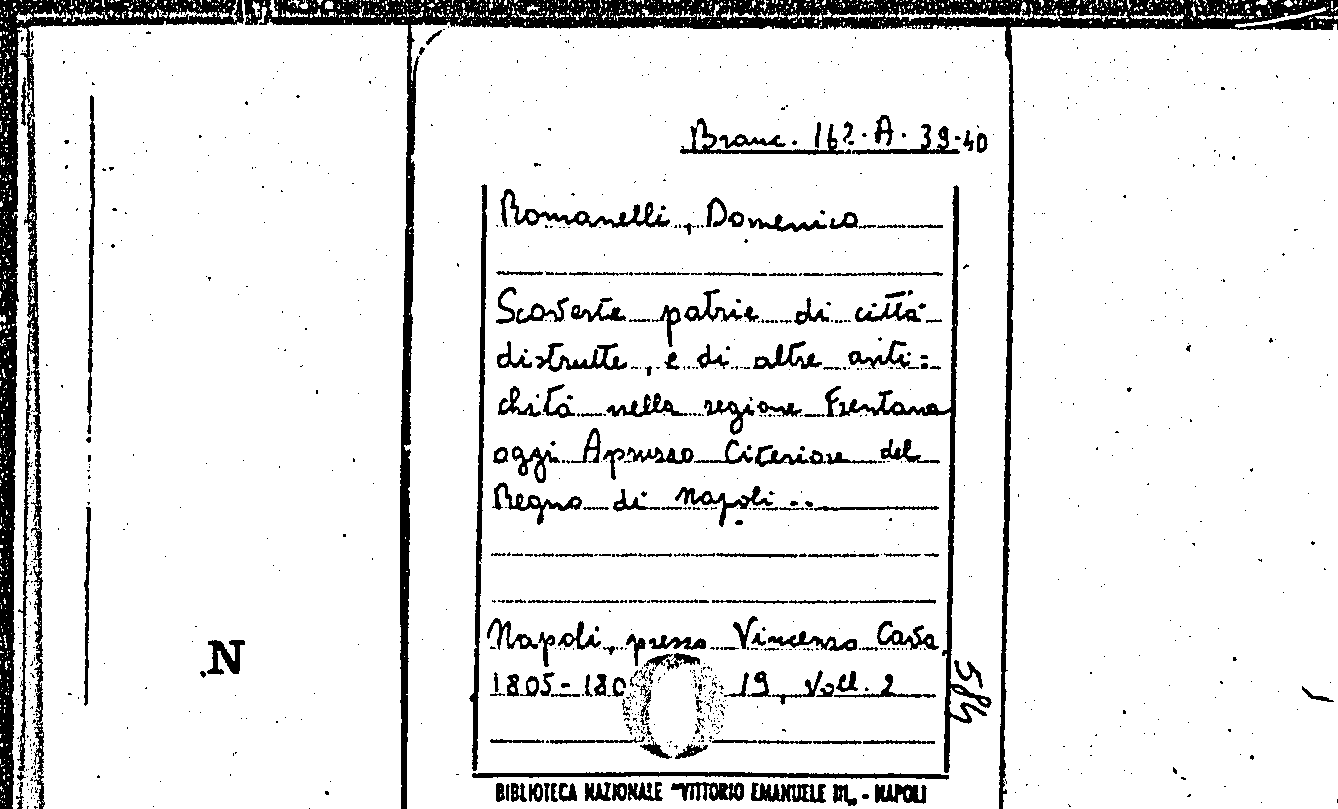 Branc. 162.A.39-40
Romanelli, Domenico
Scoverte patrie di città
distrutte, e di altre anti=
chità nella regione Frentana
oggi Apruzzo Citeriore del
Regno di Napoli..
Napoli, presso Vincenzo Cava,
1805-180 19, Voll. 2
584
N
BIBLIOTECA NAZIONALE "VITTORIO EMANUELE III„ - NAPOLI